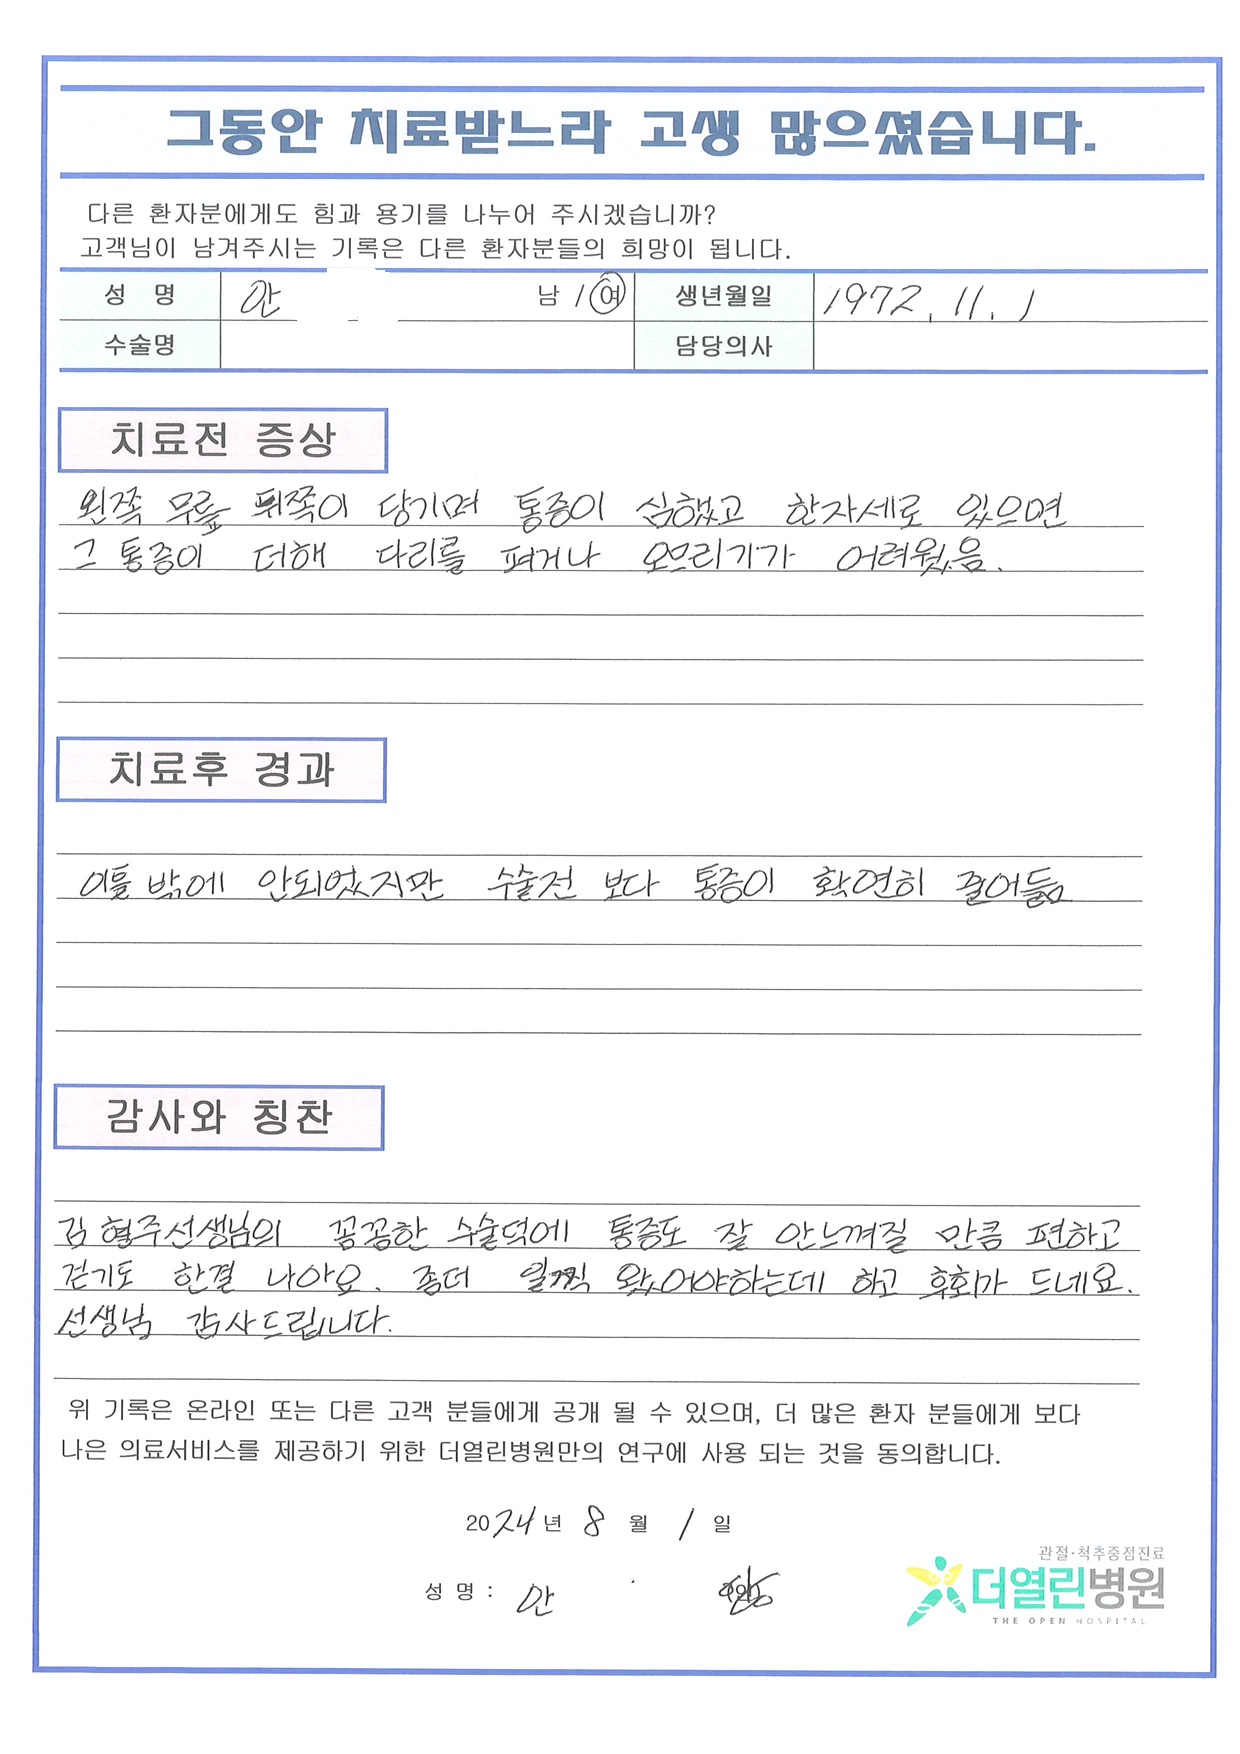 그동안 치료받느라 고생 많으셨습니다.
다른 환자분에게도 힘과 용기를 나누어 주시겠습니까?
고객님이 남겨주시는 기록은 다른 환자분들의 희망이 됩니다.
성 명 안 남 / 여 생년월일 1972. 11. 1
수술명 담당의사
치료전 증상
왼쪽 무릎 뒤쪽이 당기며 통증이 심했고 한자세로 있으면
그 통증이 더해 다리를 펴거나 오므리기가 어려웠음.
치료후 경과
이틀 밖에 안되었지만 수술전 보다 통증이 확연히 줄어듦
감사와 칭찬
김형주선생님의 꼼꼼한 수술덕에 통증도 잘 안느껴질 만큼 편하고
걷기도 한결 나아요. 좀더 일찍 왔었어야하는데 하고 후회가 드네요.
선생님 감사드립니다.
위 기록은 온라인 또는 다른 고객 분들에게 공개 될 수 있으며, 더 많은 환자 분들에게 보다
나은 의료서비스를 제공하기 위한 더열린병원만의 연구에 사용 되는 것을 동의합니다.
2024년 8 월 1 일
관절·척추중점진료
성 명 : 안
더열린병원
THE OPEN HOSPITAL